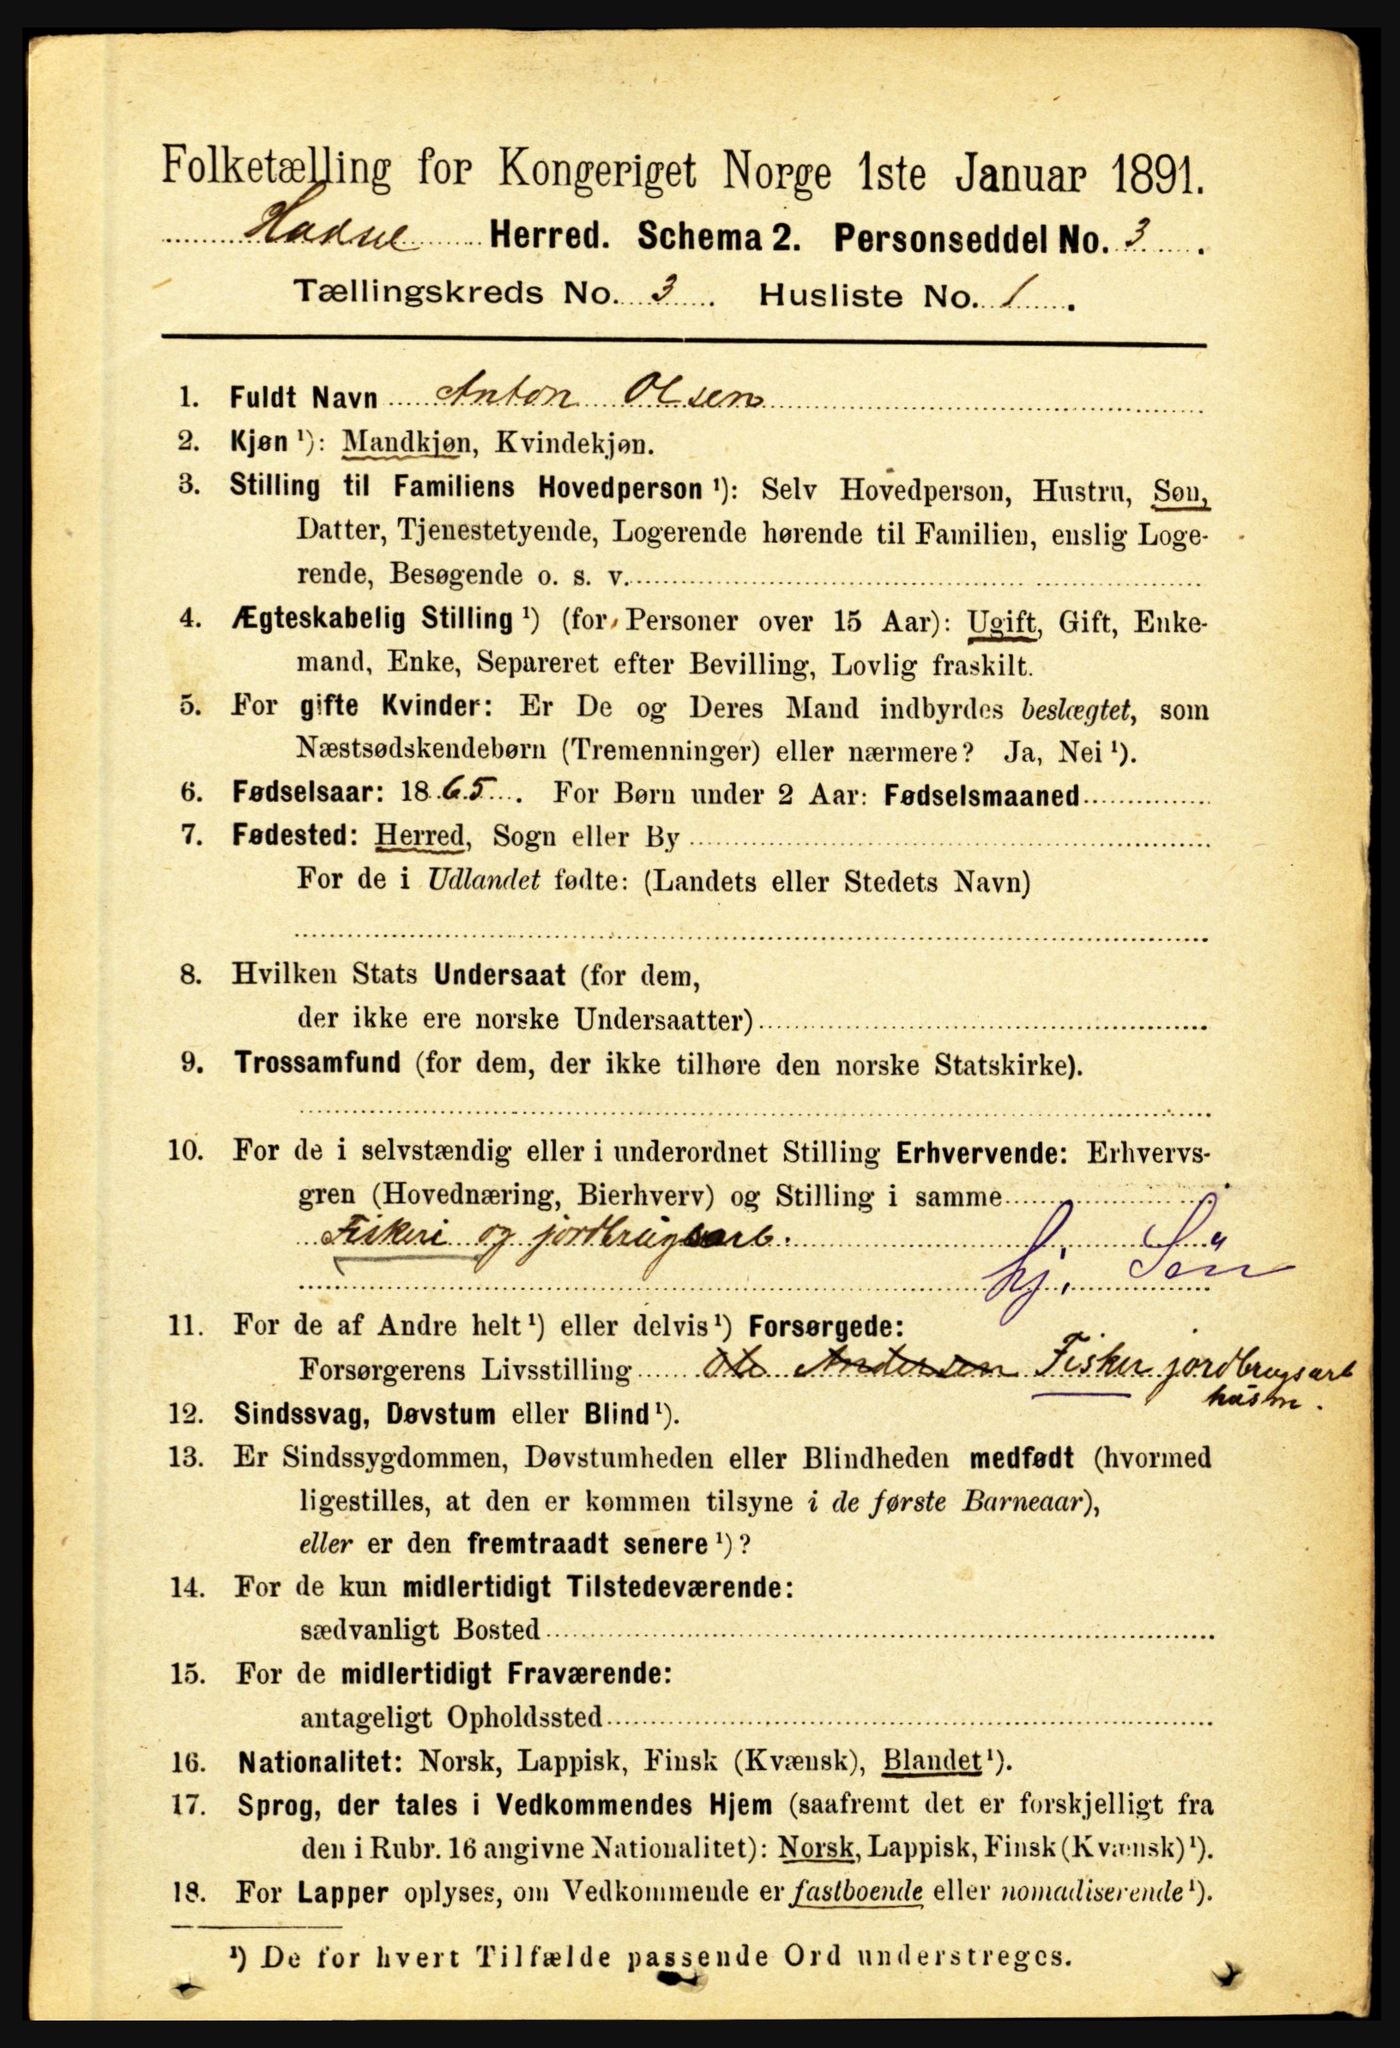 Folketælling for Kongeriget Norge 1ste Januar 1891.
Hadsel Herred. Schema 2. Personseddel No. 3.
Tællingskreds No. 3. Husliste No. 1.
1. Fuldt Navn Anton Olsen
2. Kjøn ¹): Mandkjøn, Kvindekjøn.
3. Stilling til Familiens Hovedperson ¹): Selv Hovedperson, Hustru, Søn,
Datter, Tjenestetyende, Logerende hørende til Familien, enslig Loge-
rende, Besøgende o. s. v.
4. Ægteskabelig Stilling ¹) (for Personer over 15 Aar): Ugift, Gift, Enke-
mand, Enke, Separeret efter Bevilling, Lovlig fraskilt.
5. For gifte Kvinder: Er De og Deres Mand indbyrdes beslægtet, som
Næstsødskendebørn (Tremenninger) eller nærmere? Ja, Nei ¹).
6. Fødselsaar: 1865. For Børn under 2 Aar: Fødselsmaaned
7. Fødested: Herred, Sogn eller By
For de i Udlandet fødte: (Landets eller Stedets Navn)
8. Hvilken Stats Undersaat (for dem,
der ikke ere norske Undersaatter)
9. Trossamfund (for dem, der ikke tilhøre den norske Statskirke).
10. For de i selvstændig eller i underordnet Stilling Erhvervende: Erhvervs-
gren (Hovednæring, Bierhverv) og Stilling i samme
Fiskeri og jordbrugsarb.
hj. Søn
11. For de af Andre helt ¹) eller delvis ¹) Forsørgede:
Forsørgerens Livsstilling Ole Andersen Fisker jordbrugsarb
husm.
12. Sindssvag, Døvstum eller Blind ¹).
13. Er Sindssygdommen, Døvstumheden eller Blindheden medfødt (hvormed
ligestilles, at den er kommen tilsyne i de første Barneaar),
eller er den fremtraadt senere ¹)?
14. For de kun midlertidigt Tilstedeværende:
sædvanligt Bosted
15. For de midlertidigt Fraværende:
antageligt Opholdssted
16. Nationalitet: Norsk, Lappisk, Finsk (Kvænsk), Blandet ¹).
17. Sprog, der tales i Vedkommendes Hjem (saafremt det er forskjelligt fra
den i Rubr. 16 angivne Nationalitet): Norsk, Lappisk, Finsk (Kvænsk) ¹).
18. For Lapper oplyses, om Vedkommende er fastboende eller nomadiserende ¹).
¹) De for hvert Tilfælde passende Ord understreges.